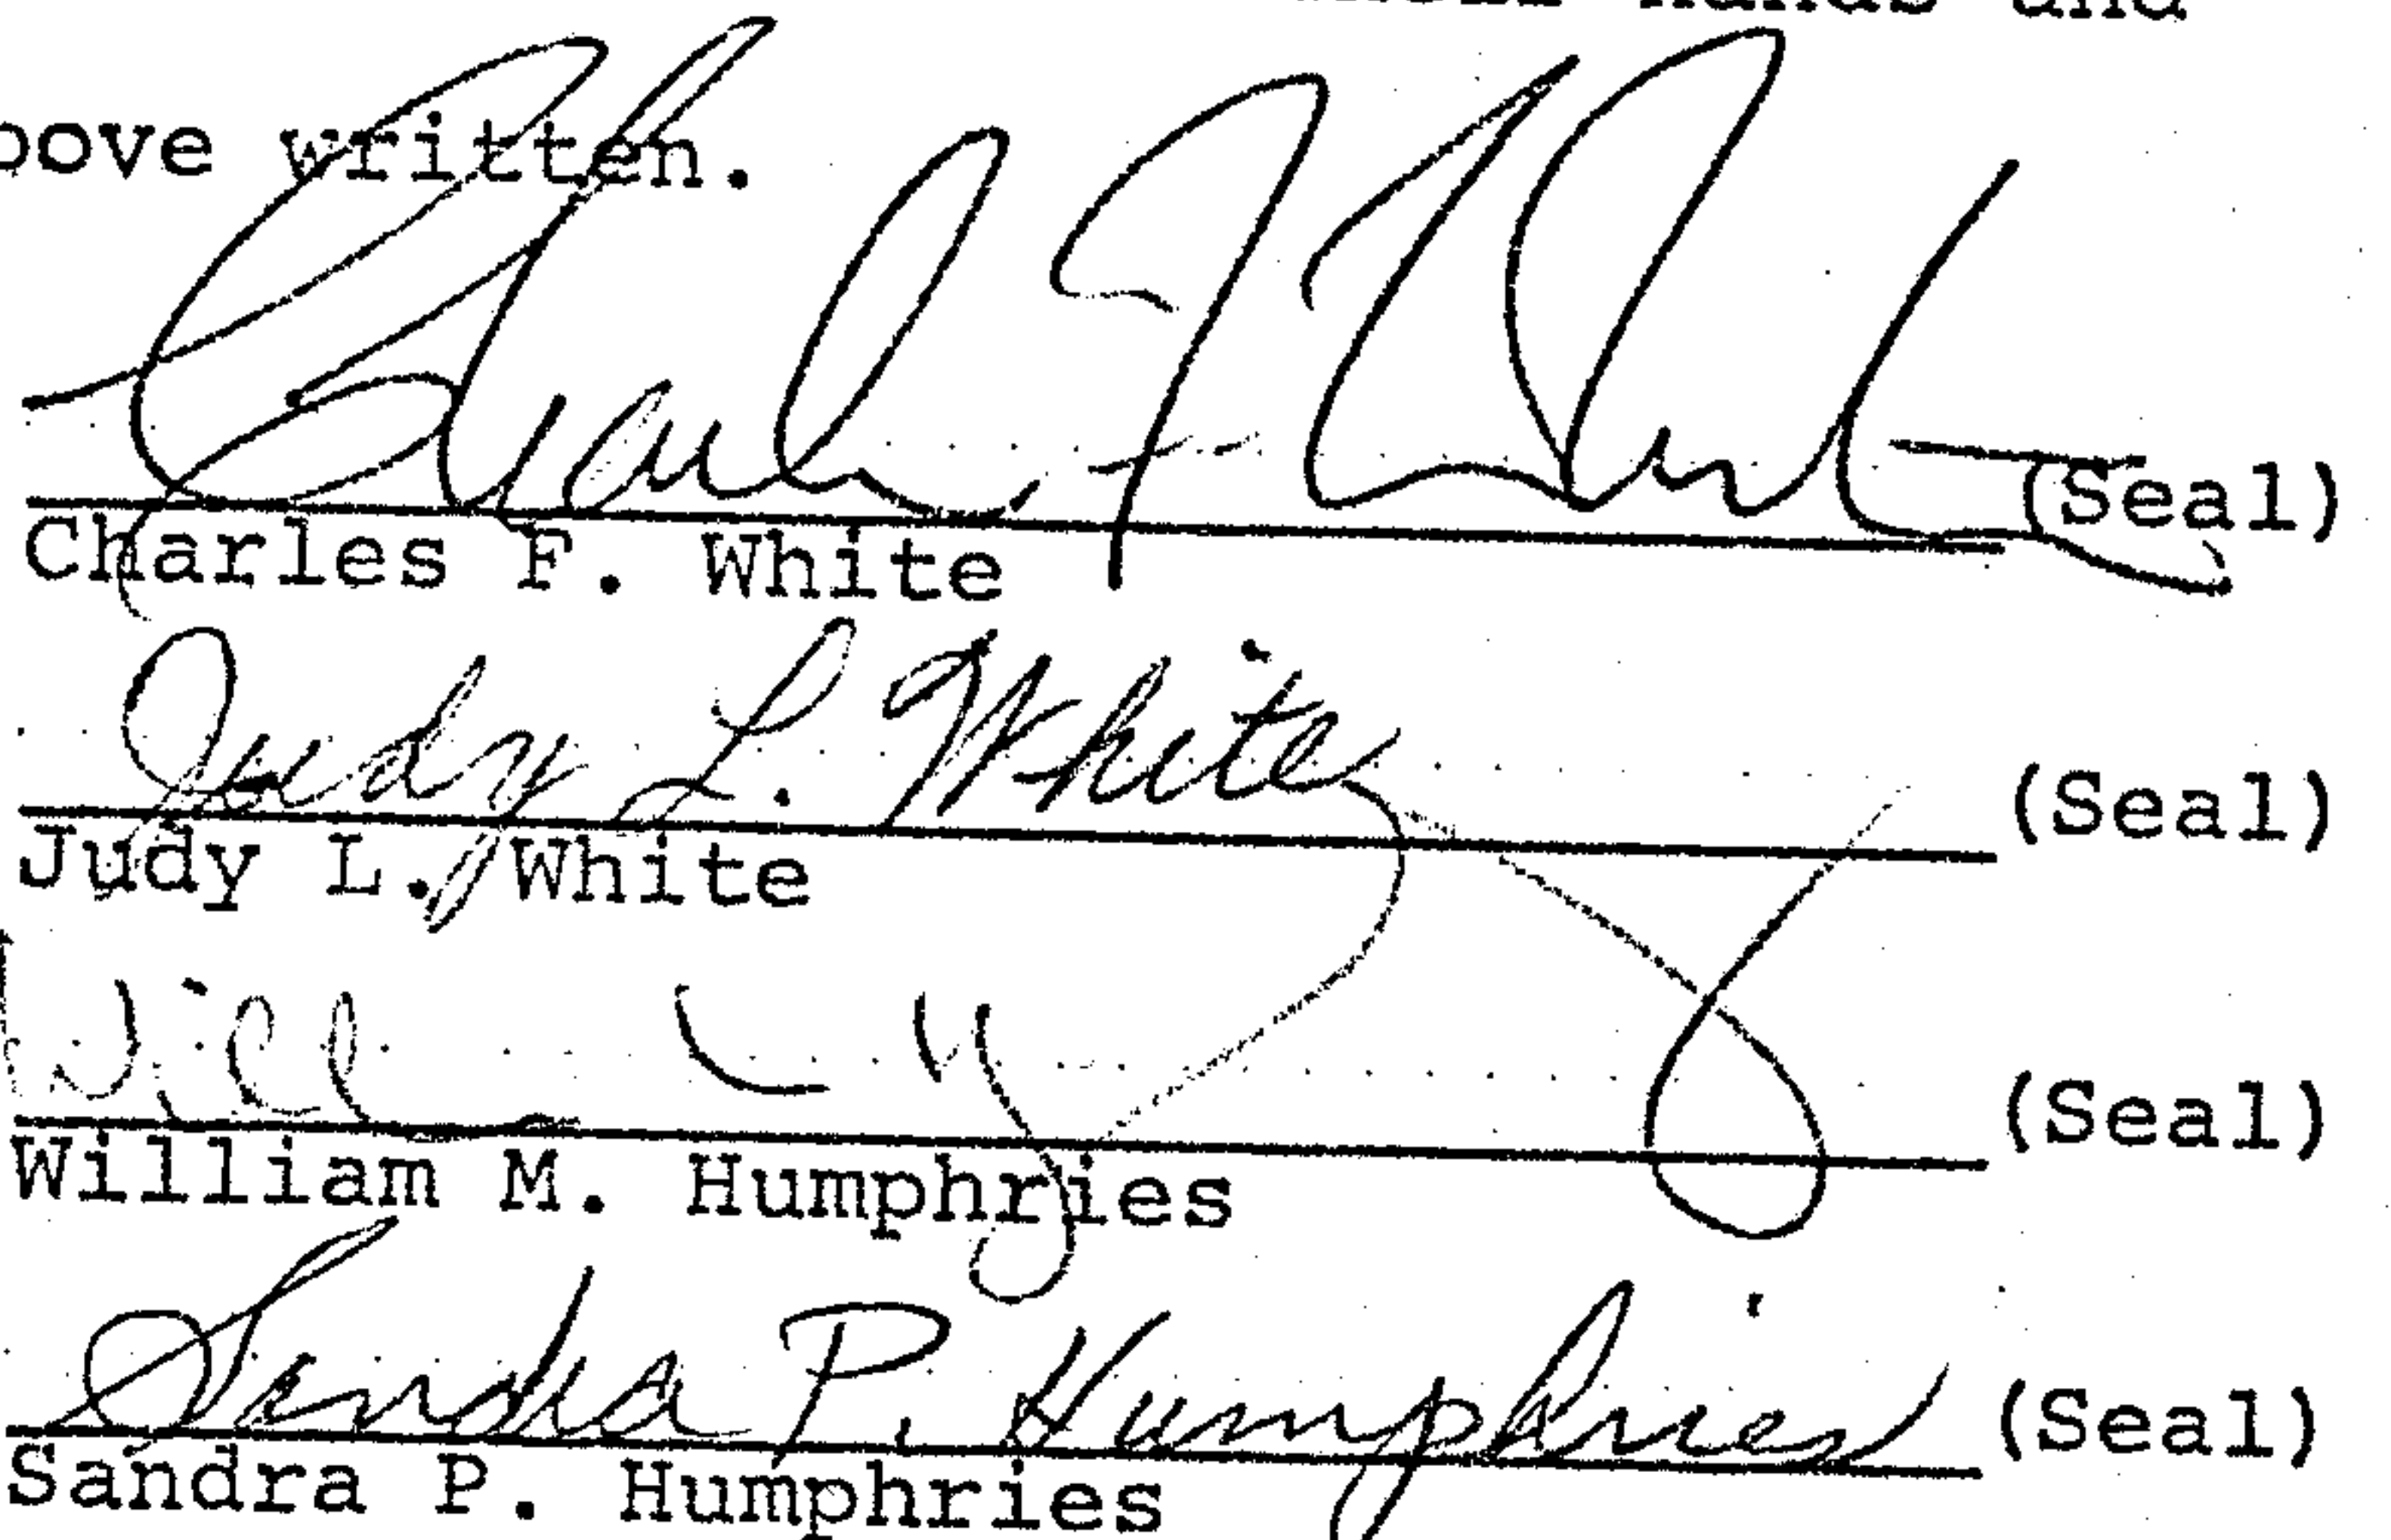 hands and
bove written.
Charles F. White (Seal)
Charles F. White
Judy L. White (Seal)
Judy L. White
(Seal)
William M. Humphries
Sandra P. Humphries (Seal)
Sandra P. Humphries